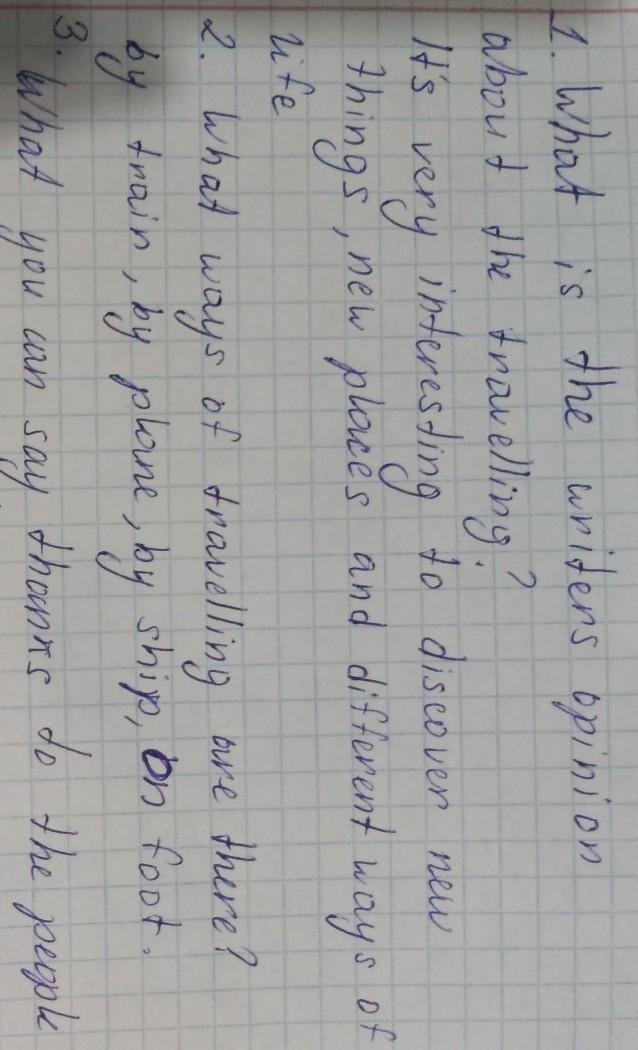 1. What is the writers opinion
about the travelling?
It's very interesting to discover new
things, new places and different ways of
life
2. What ways of travelling are there?
by train, by plane, by ship, on foot.
3. What you can say thanks to the people